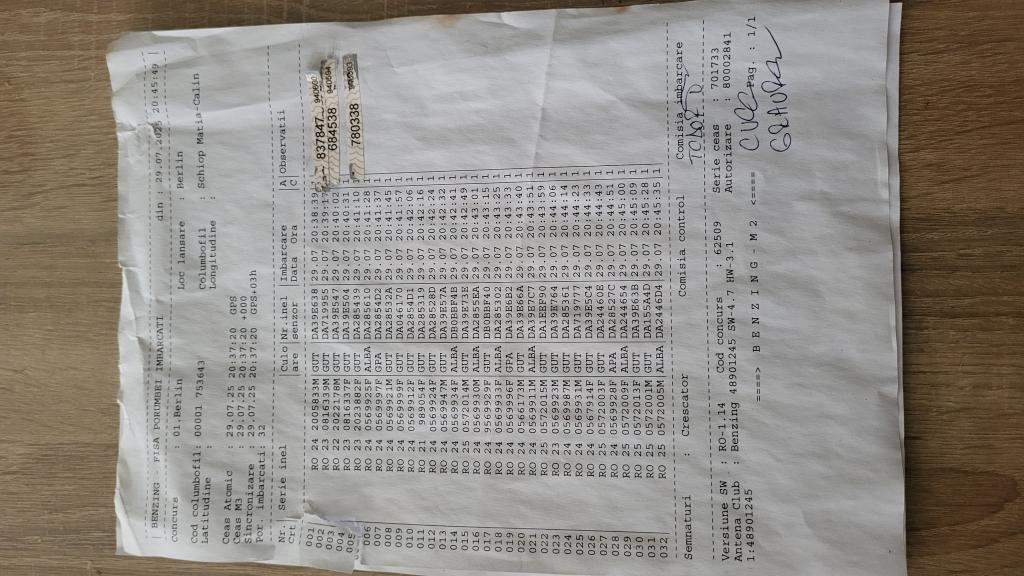 BENZING - FISA PORUMBEI IMBARCATI din : 29.07.2025 20:45:49
Concurs : 01.Berlin Loc lansare : Berlin
Cod columbofil: 00001 753643 Columbofil : Schiop Matia-Calin
Latitudine : Longitudine :
Ceas Atomic : 29.07.25 20:37:20 GPS
Ceas M3 : 29.07.25 20:37:20 +000
Sincronizare : 29.07.25 20:37:20 GPS+03h
Por. imbarcati: 32
Nr. Serie inel Culo Nr.inel Imbarcare A Observatii
Crt are senzor Data Ora C
001 RO 24 2005833M GUT DA39E638 29.07 20:38:35 1 837847
002 RO 23 0816339M GUT DA719955 29.07 20:39:17 684538
003 RO 22 2022178M GUT 29.07 20:40:02
004 RO 23 0816337F GUT DA39E504 29.07 20:40:31 780338
RO 22 2023882F GUT DA285439 29.07 20:41:10 1
006 RO 24 0569925F ALBA DA285610 29.07 20:41:28 1
007 RO 24 0569997F GPA DA2854D2 29.07 1
008 RO 24 0569921M GUT DA28532A 29.07 20:41:45 1
009 RO 24 0569999F GUT DA046170 29.07 20:41:57 1
010 RO 24 0569912F GUT DA2854D1 29.07 20:42:06 1
011 RO 24 GUT DA285319 29.07 20:42:16 1
012 RO 24 0569924F GUT DA28528D 29.07 20:42:24 1
013 RO 24 0569947M GUT DA39E57A 29.07 20:42:32 1
014 RO 24 0569934F ALBA 29.07 20:42:41 1
015 RO 25 0572014M GUT DA39E73E 29.07 20:42:49 1
016 RO 24 0569900M ALBA DA2855EA 29.07 20:43:01 1
017 RO 24 GUT 29.07 20:43:15 1
018 RO 24 0569933F ALBA DA285302 29.07 20:43:25 1
019 RO 24 0569996F GPA DA39E6B2 29.07 20:43:33 1
020 RO 24 0566173M GUT DA39E66A 29.07 20:43:40 1
021 RO 24 0569931M ALBA DA39E7C7 29.07 20:43:51 1
022 RO 25 0572015M GUT DA1EEF90 29.07 20:43:59 1
023 RO 23 0569923M GUT DA39E764 29.07 20:44:06 1
024 RO 24 0569987M GUT DA285361 29.07 20:44:14 1
025 RO 24 0569913M GUT DA719777 29.07 20:44:23 1
026 RO 24 0567914F GUT DA39E5C4 29.07 20:44:33 1
027 RO 25 0572003F GUT DA24460E 29.07 20:44:43 1
028 RO 24 0569928F APA DA28527C 29.07 20:44:51 1
029 RO 25 0572009F ALBA DA244654 29.07 20:45:00 1
030 RO 25 0572013F GUT DA39E63B 29.07 20:45:09 1
031 RO 25 0572001M GUT DA155A4D 29.07 20:45:28 1
032 RO 25 0572005M ALBA DA2446D4 29.07 20:45:35 1
Semnaturi : Crescator Comisia control Comisia imbarcare
Versiune SW : RO-1.14 Cod concurs : 62509 Serie ceas : 701733
Antena Club : Benzing 48901245 SW-4.7 HW-3.1 Autorizare : 80002841
1:48901245 Pag. : 1/1
====> B E N Z I N G - M 2 <====